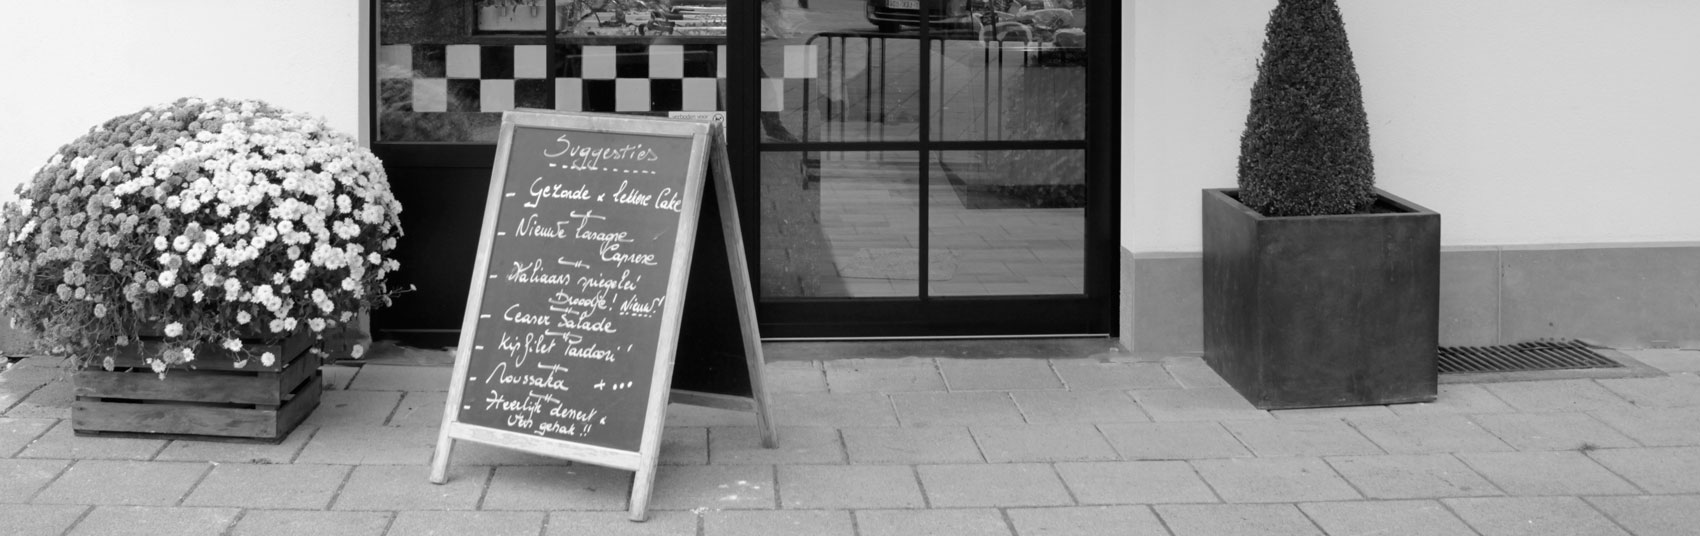 Suggesties
- Gezonde & lekkere Cake
- Nieuwe lasagne
Caprese
- Italiaans spiegelei
Broodje! Nieuw!
- Ceaser Salade
- Kipfilet Pandoori!
- Moussaka + ...
- Heerlijk dessert &
gebak!!